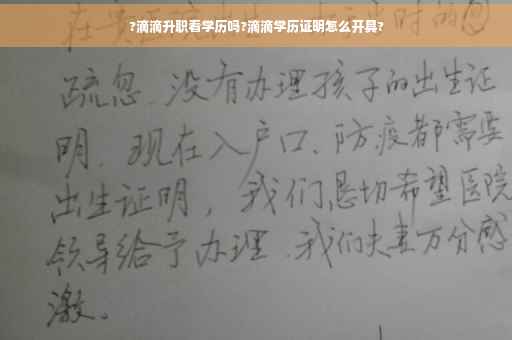 ?滴滴升职看学历吗?滴滴学历证明怎么开具?
疏忽、没有办理孩子的出生证
明、现在入户口、防疫都需要
出生证明，我们恳切希望医院
领导给予办理、我们夫妻万分感
激。